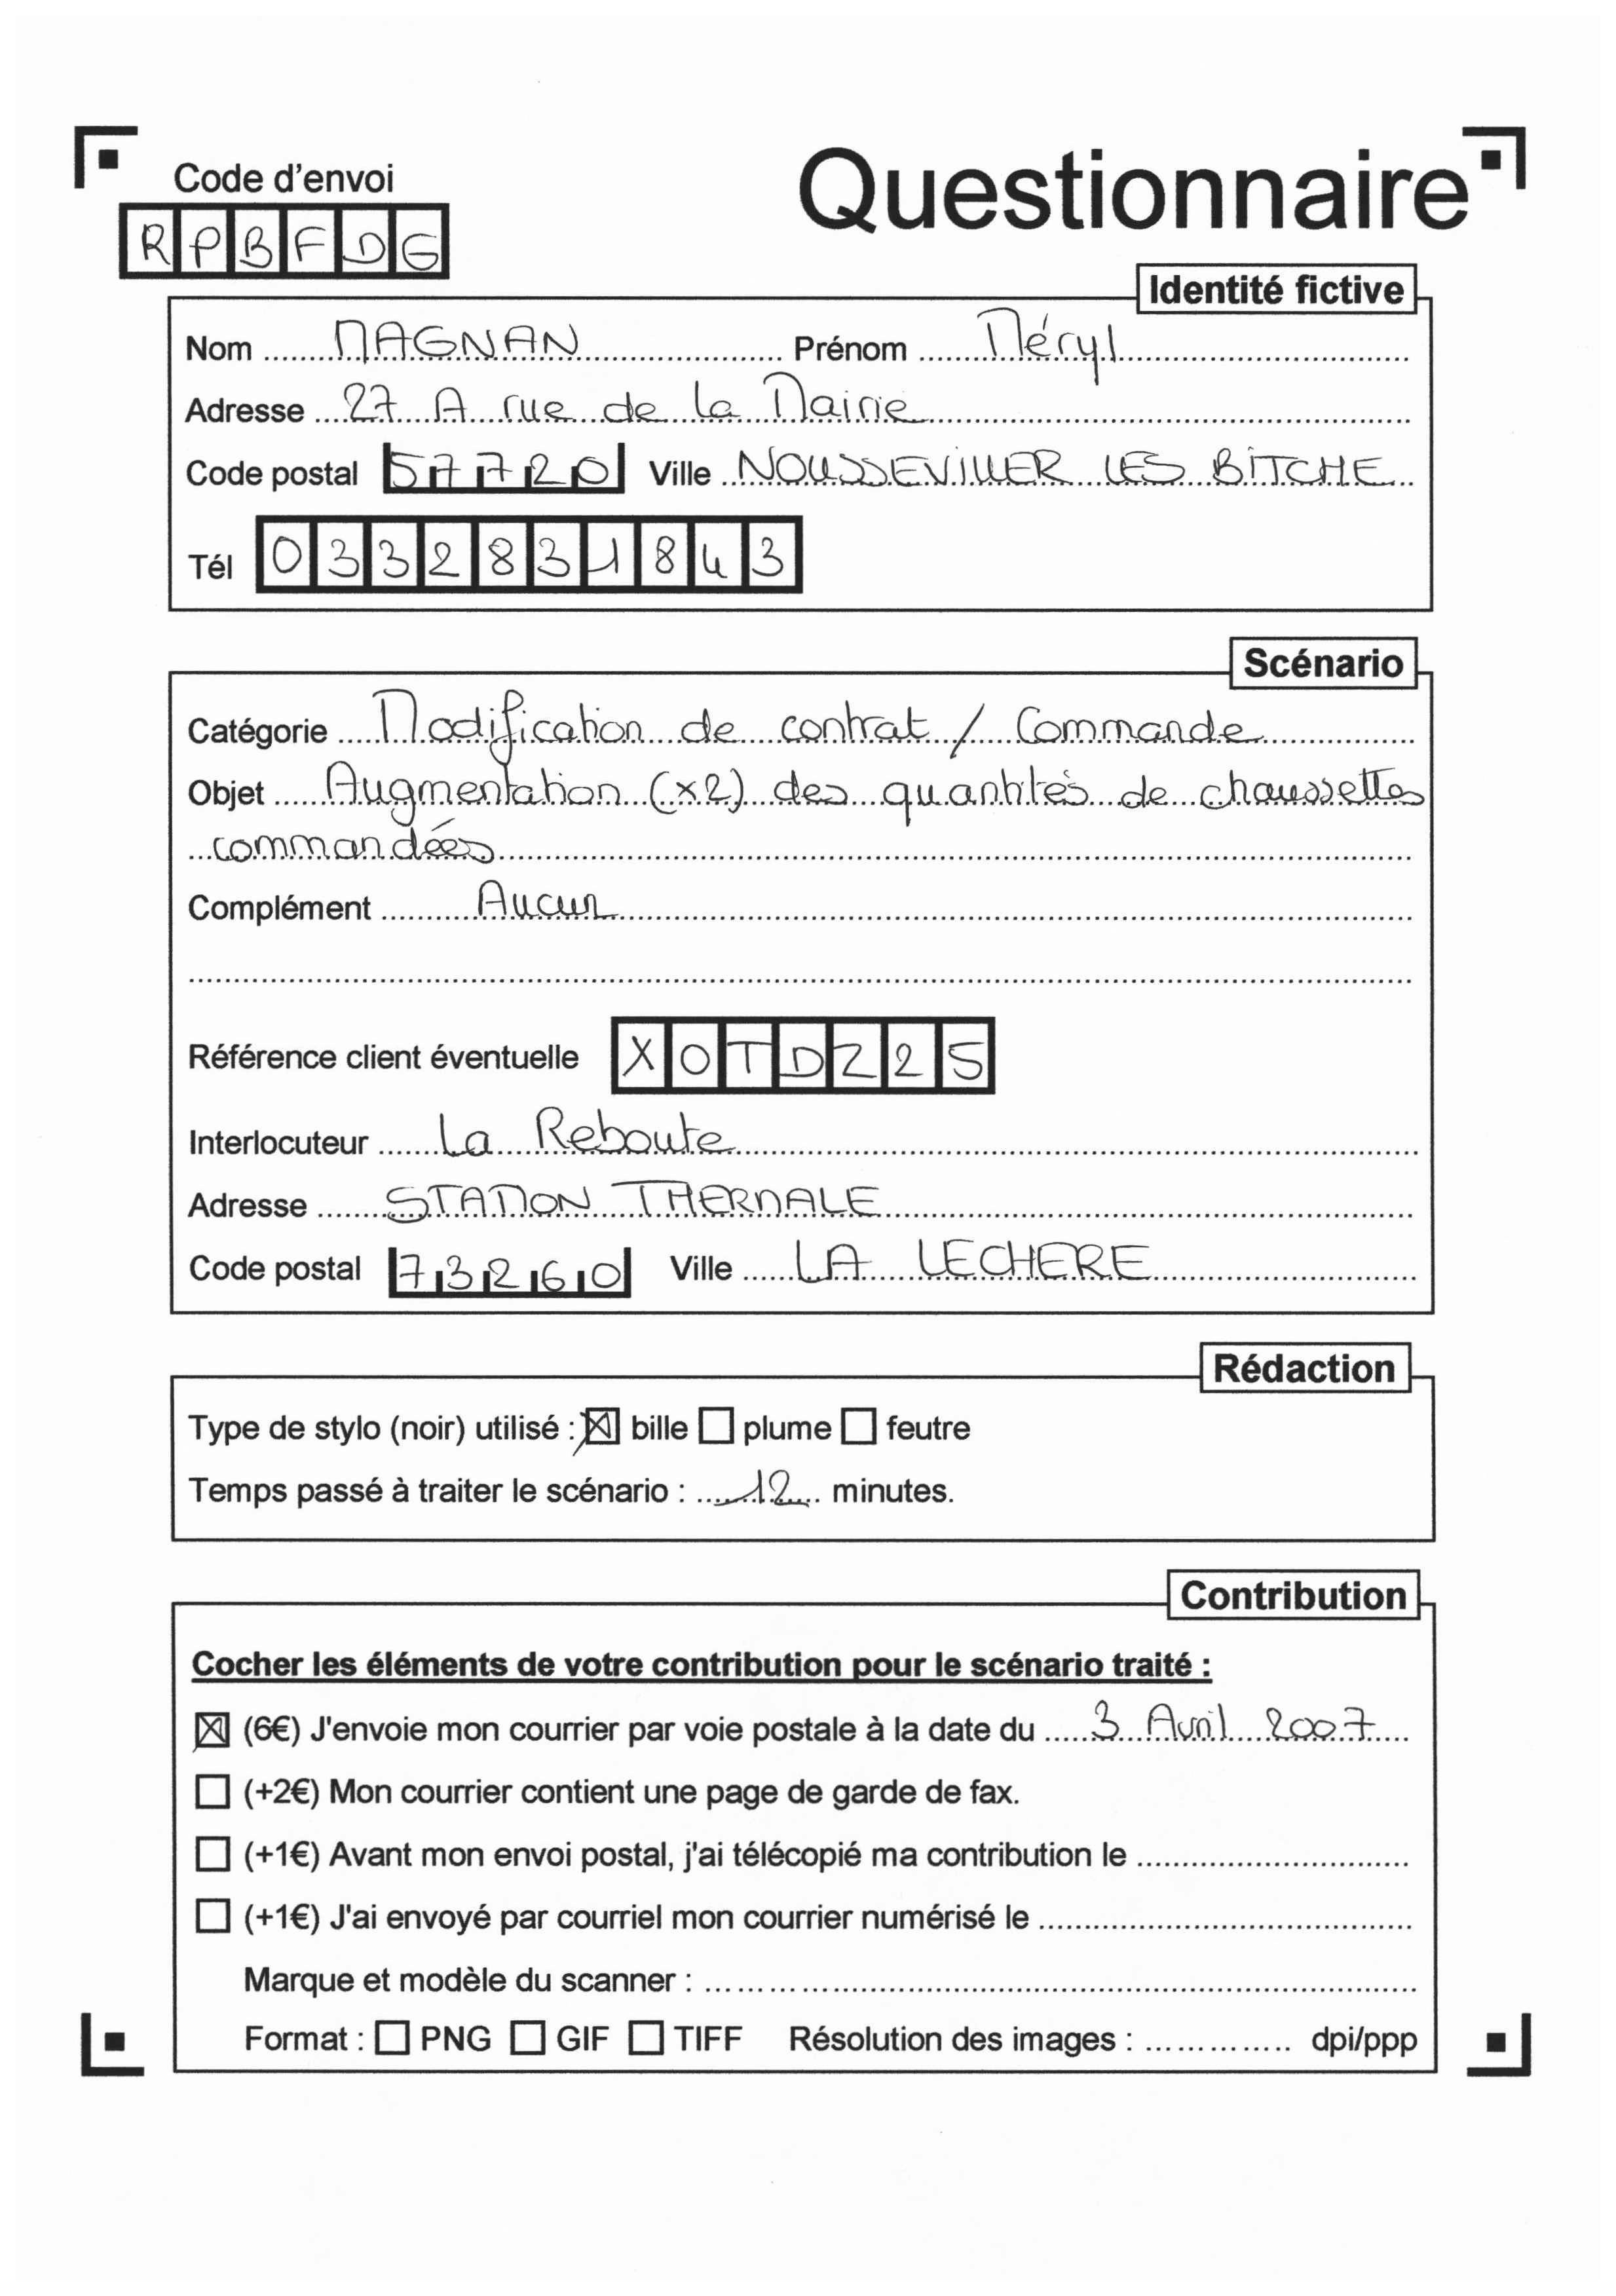 Code d'envoi
Questionnaire
RPBFDG
Identité fictive
Nom MAGNAN Prénom Méryl
Adresse 27 A rue de la Mairie
Code postal 57720 Ville NOUSSEVILLER LES BITCHE
Tél 0332831843
Scénario
Catégorie Modification de contrat / Commande
Objet Augmentation (x2) des quantités de chaussettes
commandées
Complément Aucun
Référence client éventuelle XOTDZ25
Interlocuteur La Reboute
Adresse STATION THERMALE
Code postal 73260 Ville LA LECHERE
Rédaction
Type de stylo (noir) utilisé : ☒ bille ☐ plume ☐ feutre
Temps passé à traiter le scénario : 12 minutes.
Contribution
Cocher les éléments de votre contribution pour le scénario traité :
☒ (6€) J'envoie mon courrier par voie postale à la date du 3 Avril 2007
☐ (+2€) Mon courrier contient une page de garde de fax.
☐ (+1€) Avant mon envoi postal, j'ai télécopié ma contribution le
☐ (+1€) J'ai envoyé par courriel mon courrier numérisé le
Marque et modèle du scanner :
Format : ☐ PNG ☐ GIF ☐ TIFF Résolution des images : dpi/ppp